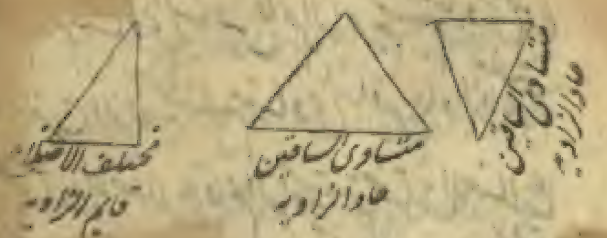 متساوی الساقین
حاد الزاویه
متساوی الساقین
حاد الزاویه
مختلف الاضلاع
قایم الزاویه